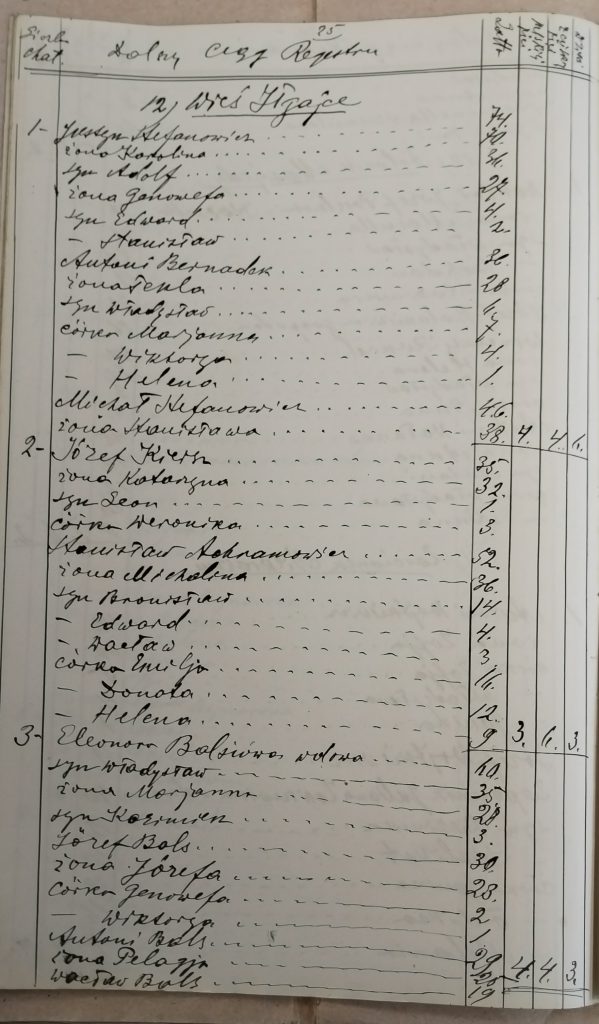 25
chat. Dalszy ciąg Registru Latta
12) Wieś Iłgajce
1- Justyn Stefanowicz 74.
żona Karolina 70.
syn Adolf 31.
żona Genowefa 27.
syn Edward 4.
— Stanisław 2.
Antoni Bernadek 36.
żona Tekla 28
syn Władysław
córka Marjanna 7.
— Wiktorya 4.
— Helena 1.
Michał Stefanowicz 46.
żona Stanisława 38. 4. 4. 6.
2- Józef Kiersz 35.
żona Katarzyna 32.
syn Leon 1.
córka Weronika 3.
Stanisław Achramowicz 52.
żona Michalina 36.
syn Bronisław 14
— Edward 4.
— Wacław 3.
córka Emilja 16.
— Donata 12.
— Helena 9. 3. 6. 3.
3- Eleonora Balsiowa wdowa 60.
syn Władysław 35.
żona Marjanna 28.
syn Kazimierz 3.
Józef Bals 30.
żona Józefa 28.
córka Genowefa 2
— Wiktorya 1.
Antoni Bals 29
żona Pelagja 4. 4. 3.
Wacław Bals 19